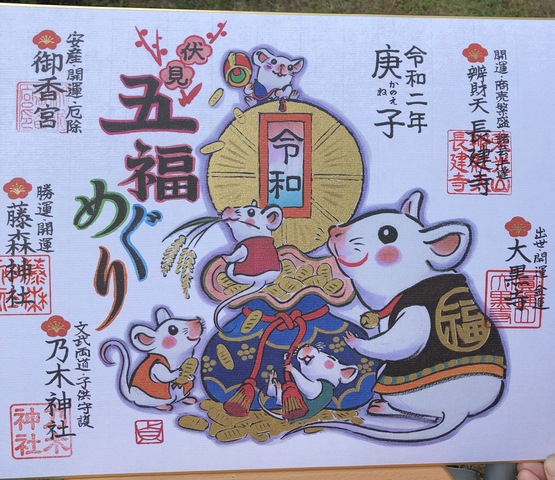 開運・商売繁盛・
辨財天 長建寺
長建寺
出世開運
大黒寺
令和二年
庚子
かのえ
ね
令和
伏見
五福
めぐり
安産・開運・厄除
御香宮
勝運・開運
藤森神社
文武両道・子供守護
乃木神社
神社
福